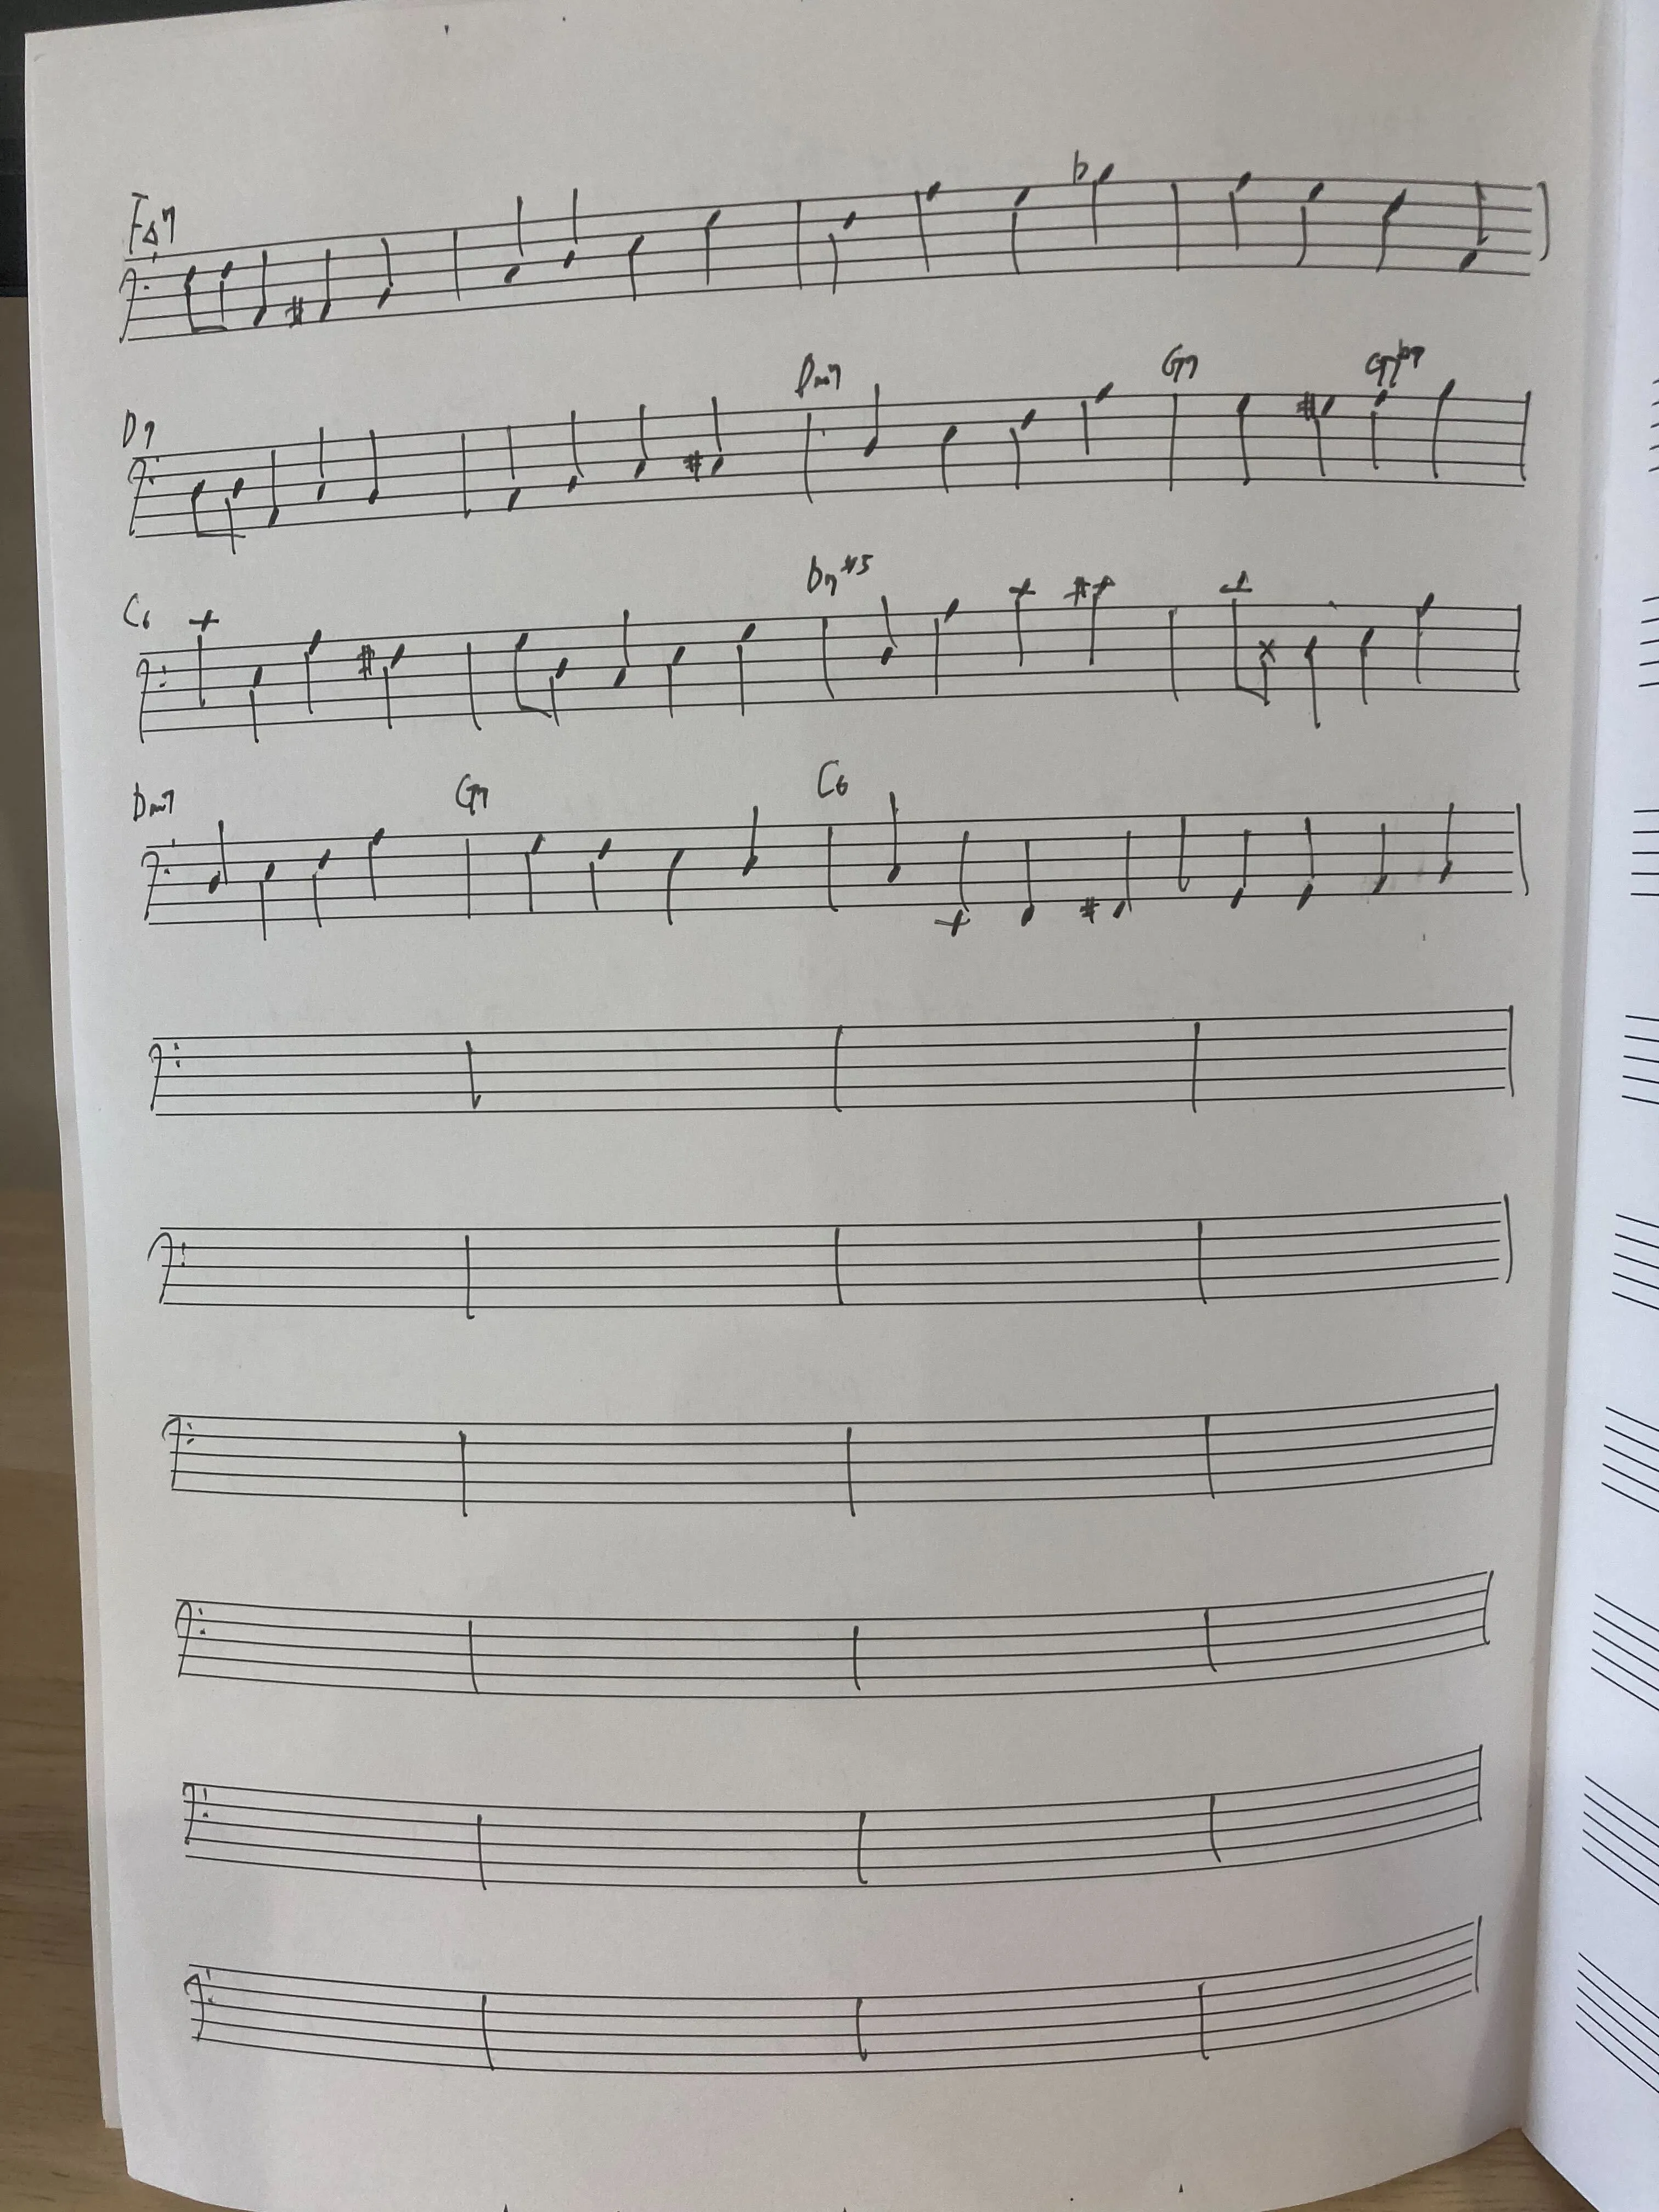 F△7
D7 Dm7 G7 G7b9
C6 D7#5
Dm7 G7 C6